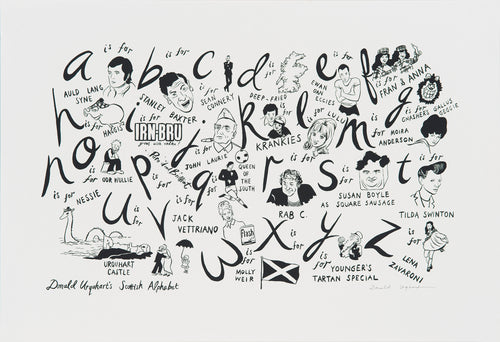 a is for AULD LANG SYNE
b is for STANLEY BAXTER
c is for SEAN CONNERY
d is for DEEP-FRIED
e is for EWAN
f is for FRAN & ANNA
g is for GALLUS
h is for HAGGIS
i is for IRN-BRU
j is for JOHN LAURIE
k is for KRANKIES
l is for LULU
m is for MOIRA ANDERSON
n is for NESSIE
o is for OOR WULLIE
p is for
q is for QUEEN OF THE SOUTH
r is for RAB C.
s is for SUSAN BOYLE AS SQUARE SAUSAGE
t is for TILDA SWINTON
u is for URQUHART CASTLE
v is for JACK VETTRIANO
Flash
w is for MOLLY WEIR
x is for
y is for YOUNGER'S TARTAN SPECIAL
z is for LENA ZAVARONI
Donald Urquhart's Scottish Alphabet